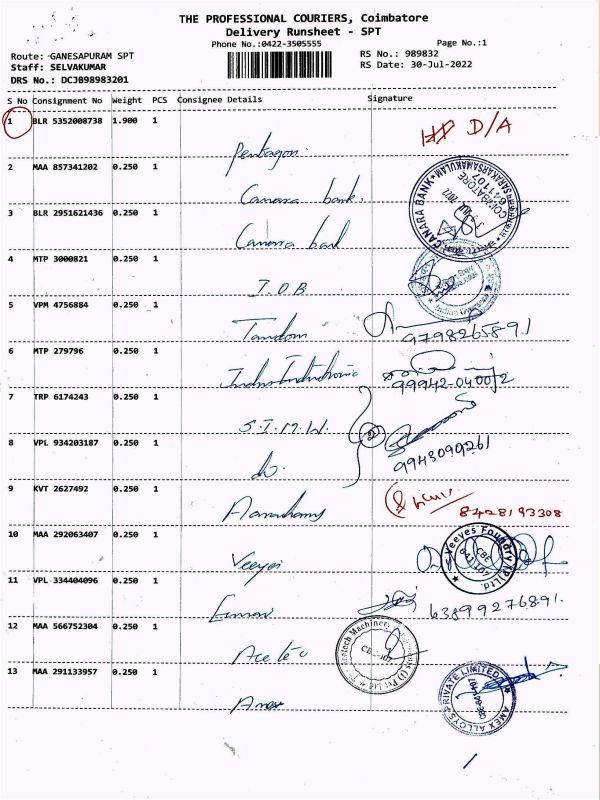 THE PROFESSIONAL COURIERS, Coimbatore
Delivery Runsheet - SPT
Phone No.:0422-3505555
Page No.:1
Route: GANESAPURAM SPT
RS No.: 989832
Staff: SELVAKUMAR
RS Date: 30-Jul-2022
DRS No.: DCJB98983201
S No Consignment No Weight PCS Consignee Details Signature
1 BLR 5352008738 1.900 1 Pentagon D/A
2 MAA 857341202 0.250 1 Canara bank.
CANARA BANK
COIMBATORE
641107
3 BLR 2951621436 0.250 1 Canara bank
4 MTP 3000821 0.250 1 I.O.B
Indian Overseas
5 VPM 4756884 0.250 1 Tandom 9798265891
6 MTP 279796 0.250 1 99942-04002
7 TRP 6174243 0.250 1 S.I.M.W.
8 VPL 934203187 0.250 1 do. 9943090261
9 KVT 2627492 0.250 1 8428193308
10 MAA 292063407 0.250 1 Veeyes
Veeyes Foundry (P) Ltd.
CBE
641107
11 VPL 334404096 0.250 1 63899276891.
12 MAA 566752304 0.250 1 Ace tec
13 MAA 291133957 0.250 1 Amex
AMEX ALLOYS PRIVATE LIMITED